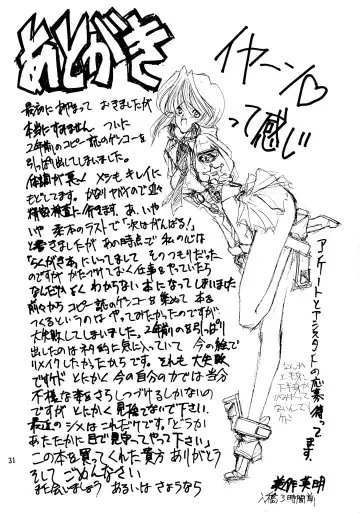 あとがき
イヤーン♡
って感じ
最初にあやまっておきますが
本当にすみません ついに
2年前のコピー誌のゲンコーを
引っぱり出してしまいました。
体調が悪く メシもキレイに
もどしてます。かなりヤバイので近々
精密検査に行きます。あ、いや
「次はがんばる!」
と書きましたが あの時点で 私の心は
「らくがき本」にいってまして そのつもりだった
のですが かたづけておく仕事をやっていたら
なんだかよくわからない本になってしまいました
前々からコピー誌のゲンコーを集めて 本を
つくるというのは やってみたかったのですが
大失敗してしまいました。2年前のを引っぱり
出したのはネタ的に気に入っていて 今の絵で
リメイクしたかったからです。それも大失敗
ですケド とにかく 今の自分の力では当分
不様な事をさらしつづけるしかない
のですが とにかく見捨てないで下さい。
最近のシメはこればっかりですケド。「どうか
あたたかい目で見守ってやって下さい」
この本を買ってくれた貴方 ありがとう
そして ごめんなさい
また会いましょう あるいは さようなら
アンケートとアシスタントの応募待ってます。
31